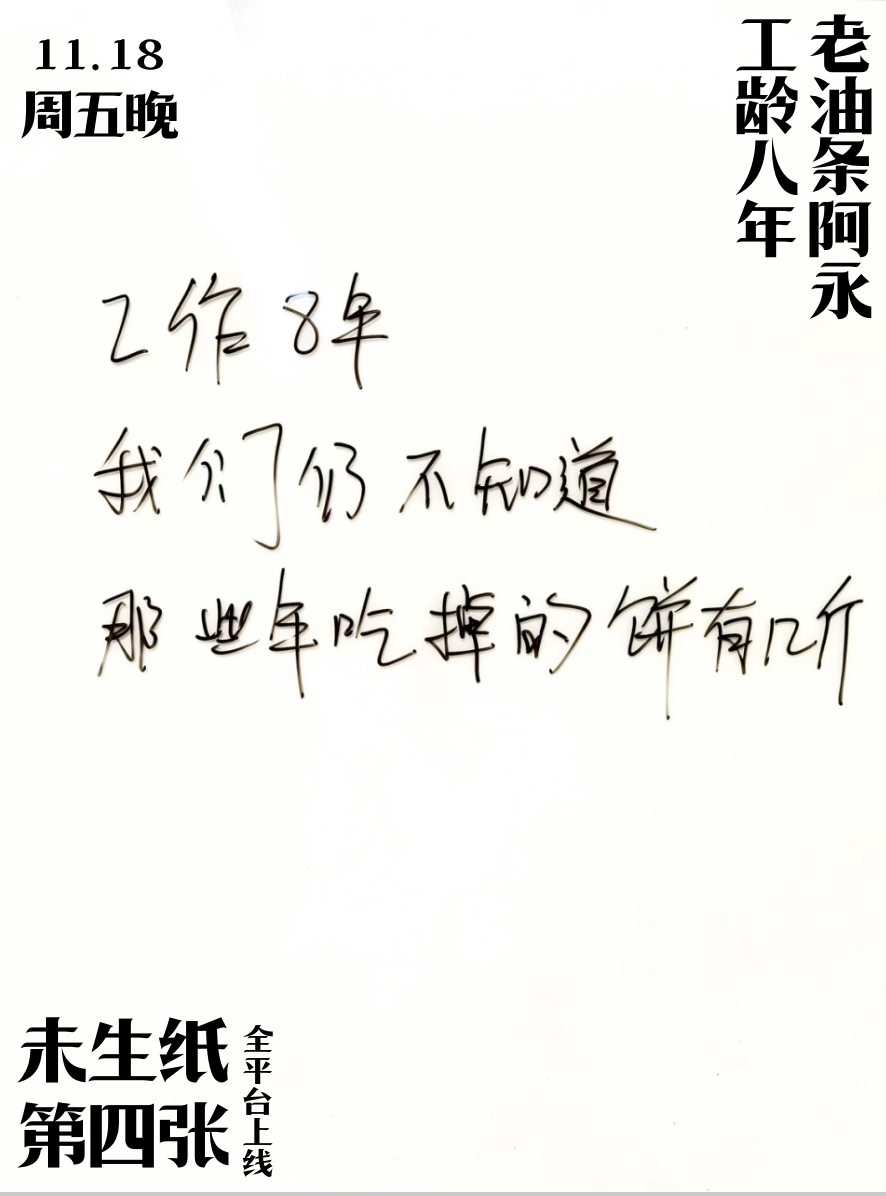 11.18
周五晚
老油条阿永
工龄八年
工作8年
我们仍不知道
那些年吃掉的饼有几斤
未生纸
第四张
全平台上线